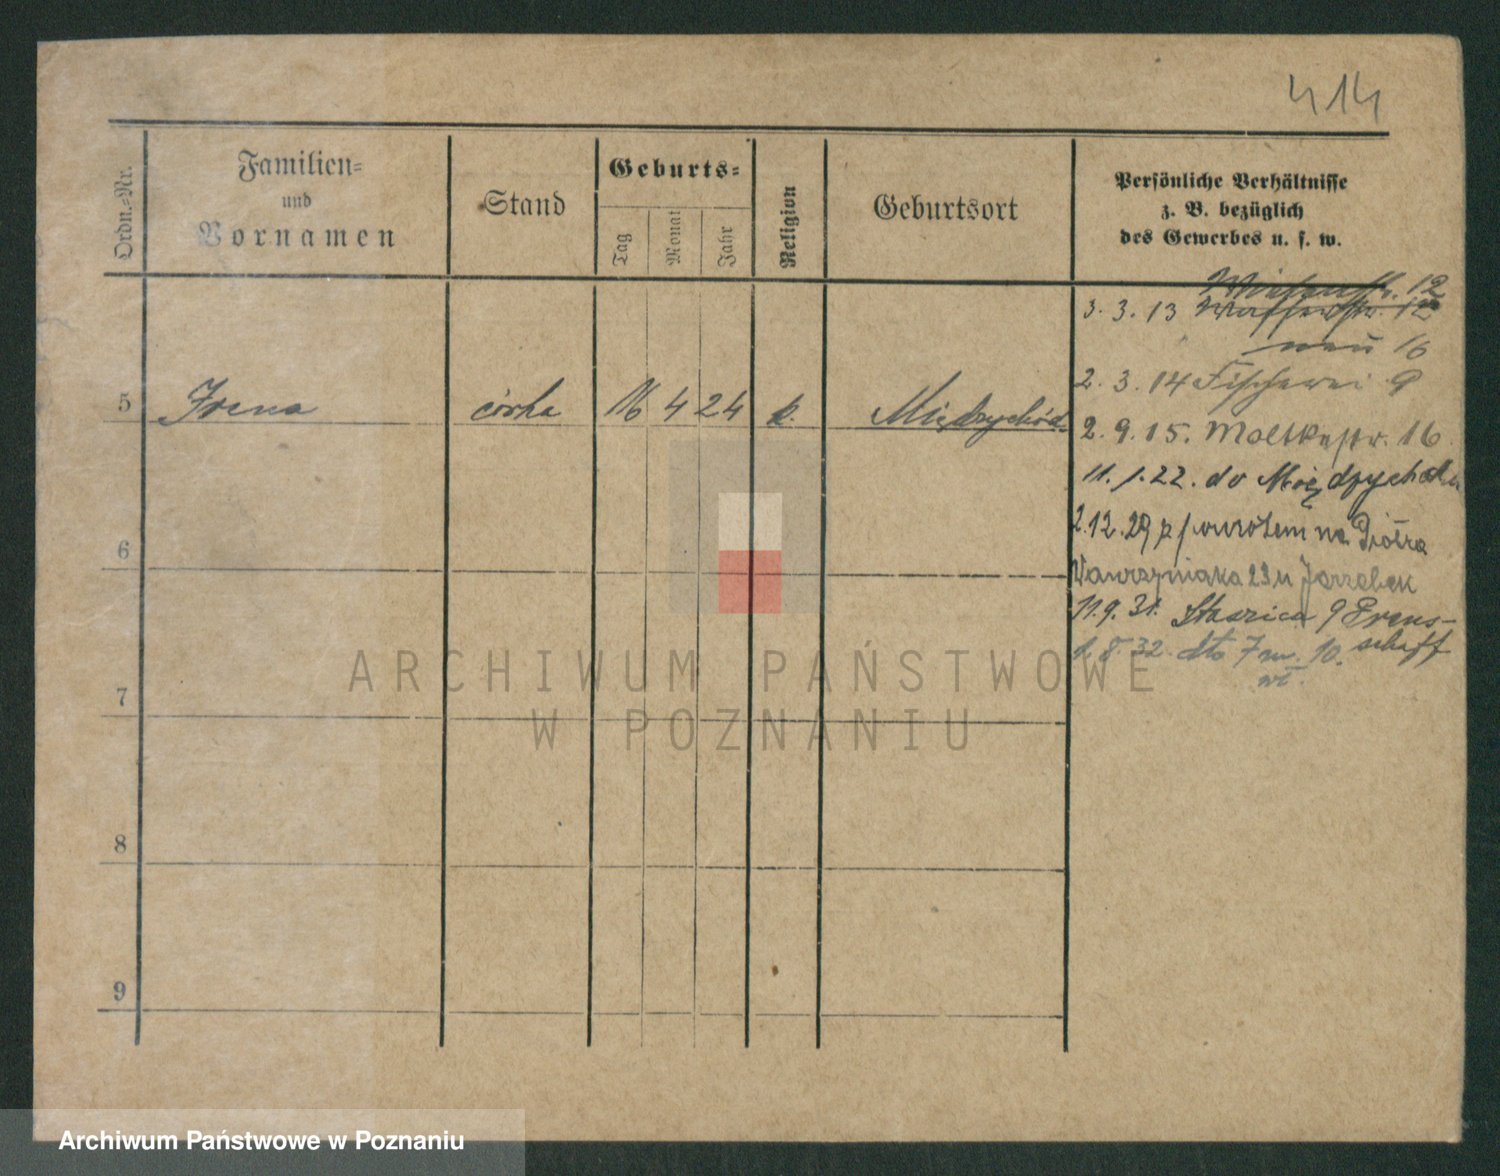 414
Ordn.-Nr.
Familien-
und
Vornamen
Stand
Geburts-
Tag
Monat
Jahr
Religion
Geburtsort
Persönliche Verhältnisse
z. B. bezüglich
des Gewerbes u. s. w.
12
3. 3. 13 Wasserstr. 12
neu 16
2. 3. 14 Fischerei 9
5 Irena córka 16 4 24 k. Międzychód
2. 9. 15. Moltkestr. 16
11. 1. 22. do Międzychodu
2.12.29 z powrotem na Piotra
6
Wawrzyniaka 23 u Jarzebek
11.9.31. Staszica 9 Evens-
schaff
8. 32. dto 7 m. 10.
7
8
9
ARCHIWUM PAŃSTWOWE
W POZNANIU
Archiwum Państwowe w Poznaniu